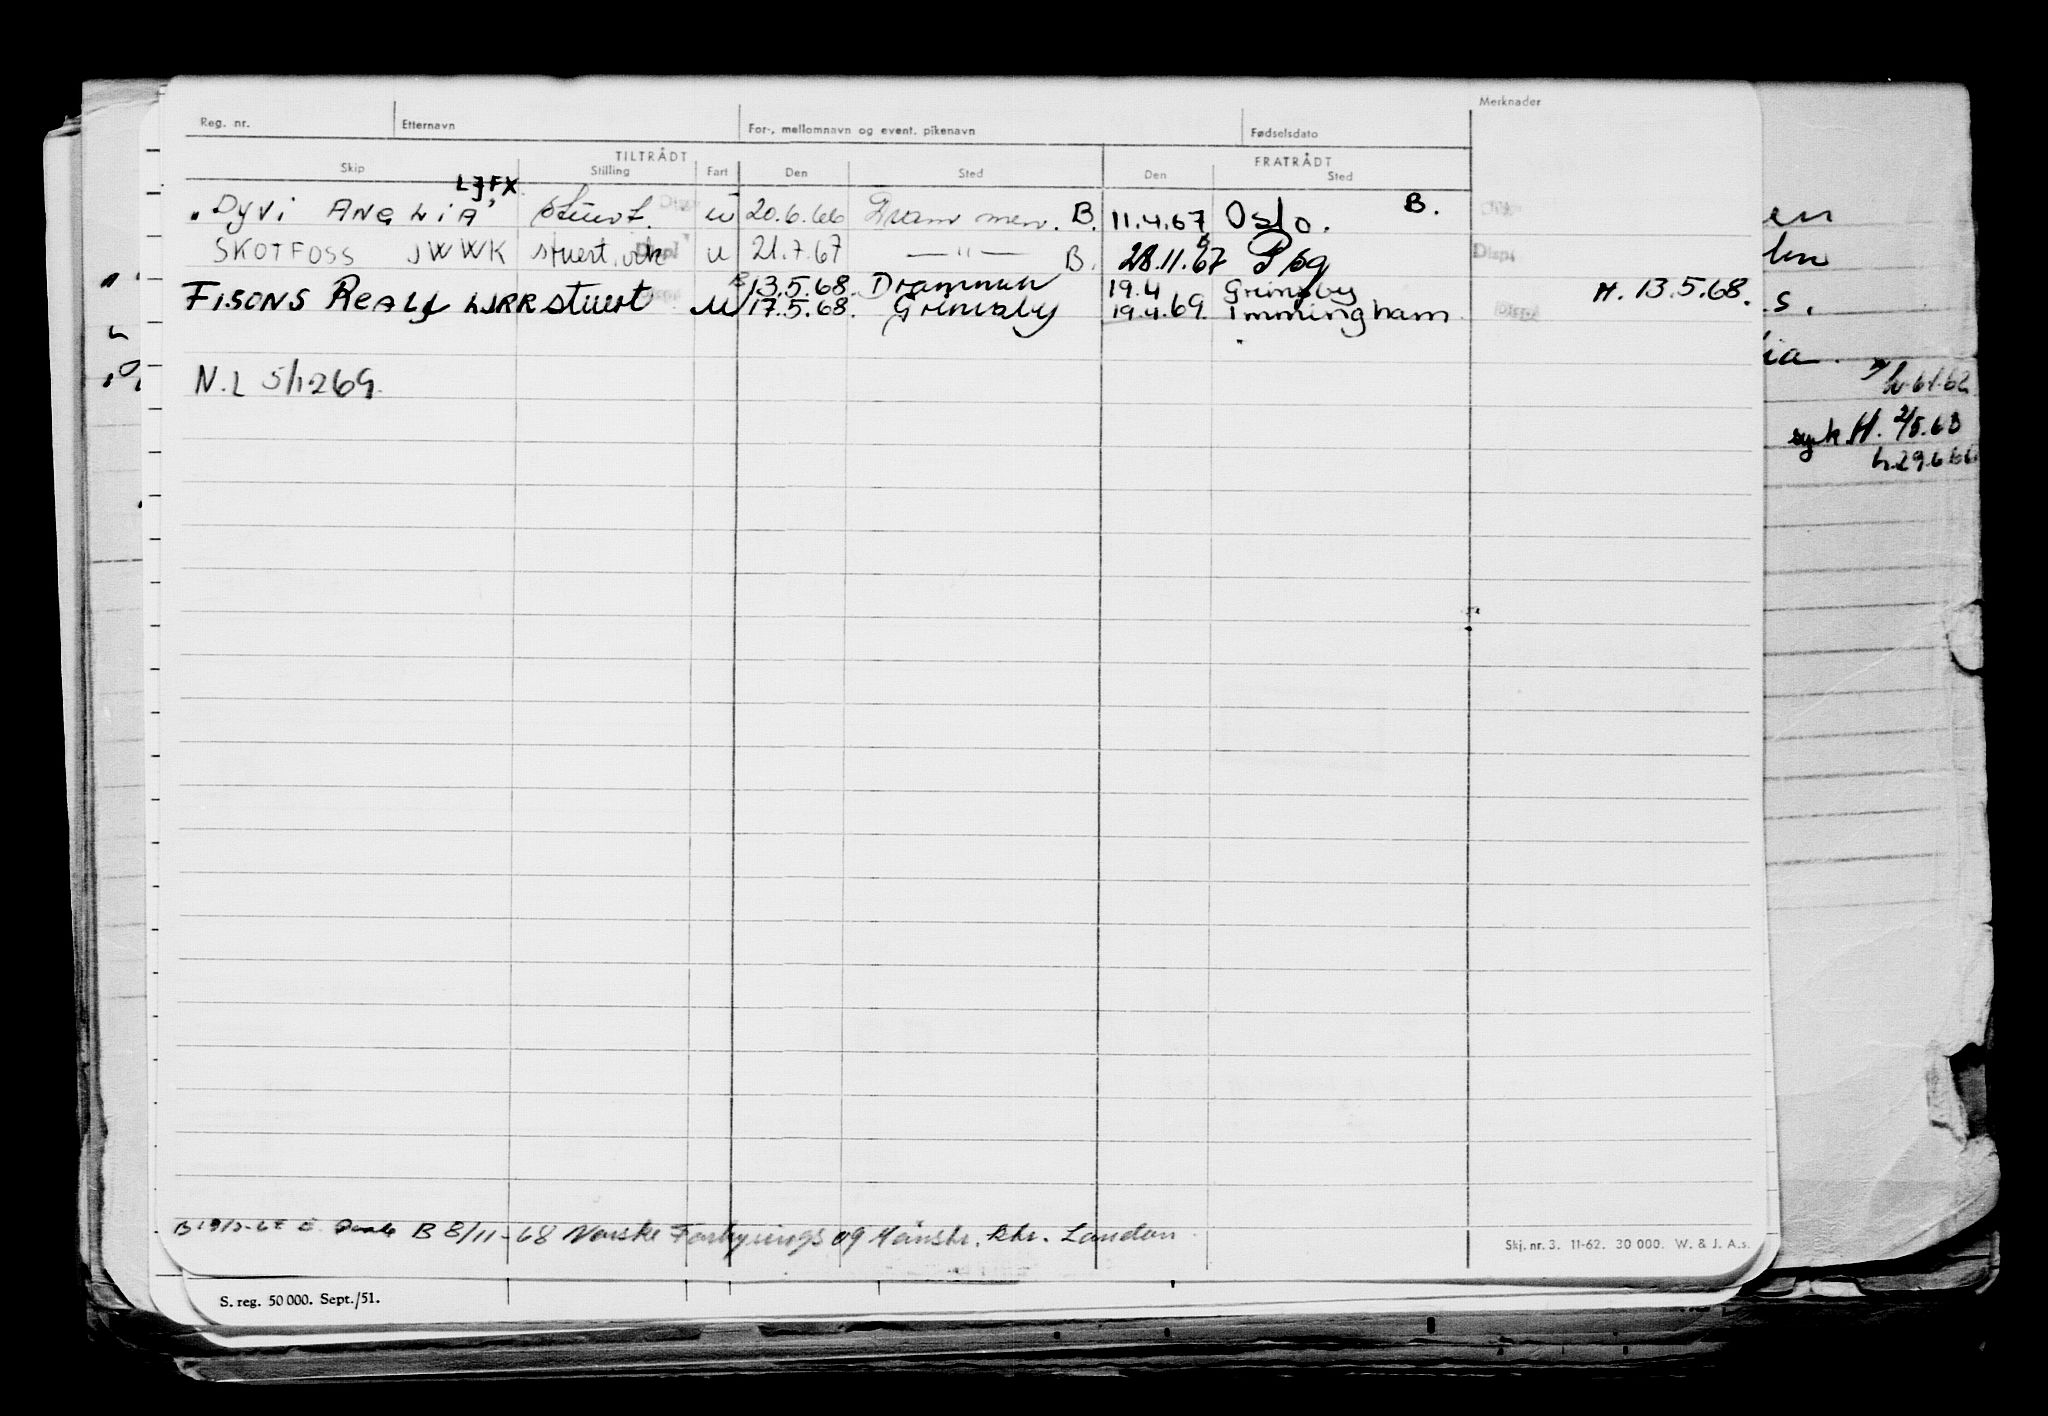 Merknader
Reg. nr. Etternavn For-, mellomnavn og event. pikenavn Fødselsdato
TILTRÅDT FRATRÅDT
Skip Stilling Fart Den Sted Den Sted
LJFX
"Dyvi ANGLIA" stuert. u 20.6.66 Drammen. B. 11.4.67 Oslo. B.
SKOTFOSS JWWK stuert, u 21.7.67 —"— B. 28.11.67 Pbg Displ
B 13.5.68. Drammen 19.4 Grimsby H. 13.5.68.
FISONS REALF LJRR stuert u 17.5.68. Grimsby 19.4.69. Immingham
N.L 5/1269.
B 8/11-68 Norske og Mønstr. ktr. London
Skj. nr. 3. 11-62. 30 000. W. & J. A.s.
S. reg. 50 000. Sept./51.
en
len
s.
ia.
syk H. 2/5.63
h.29.6.66